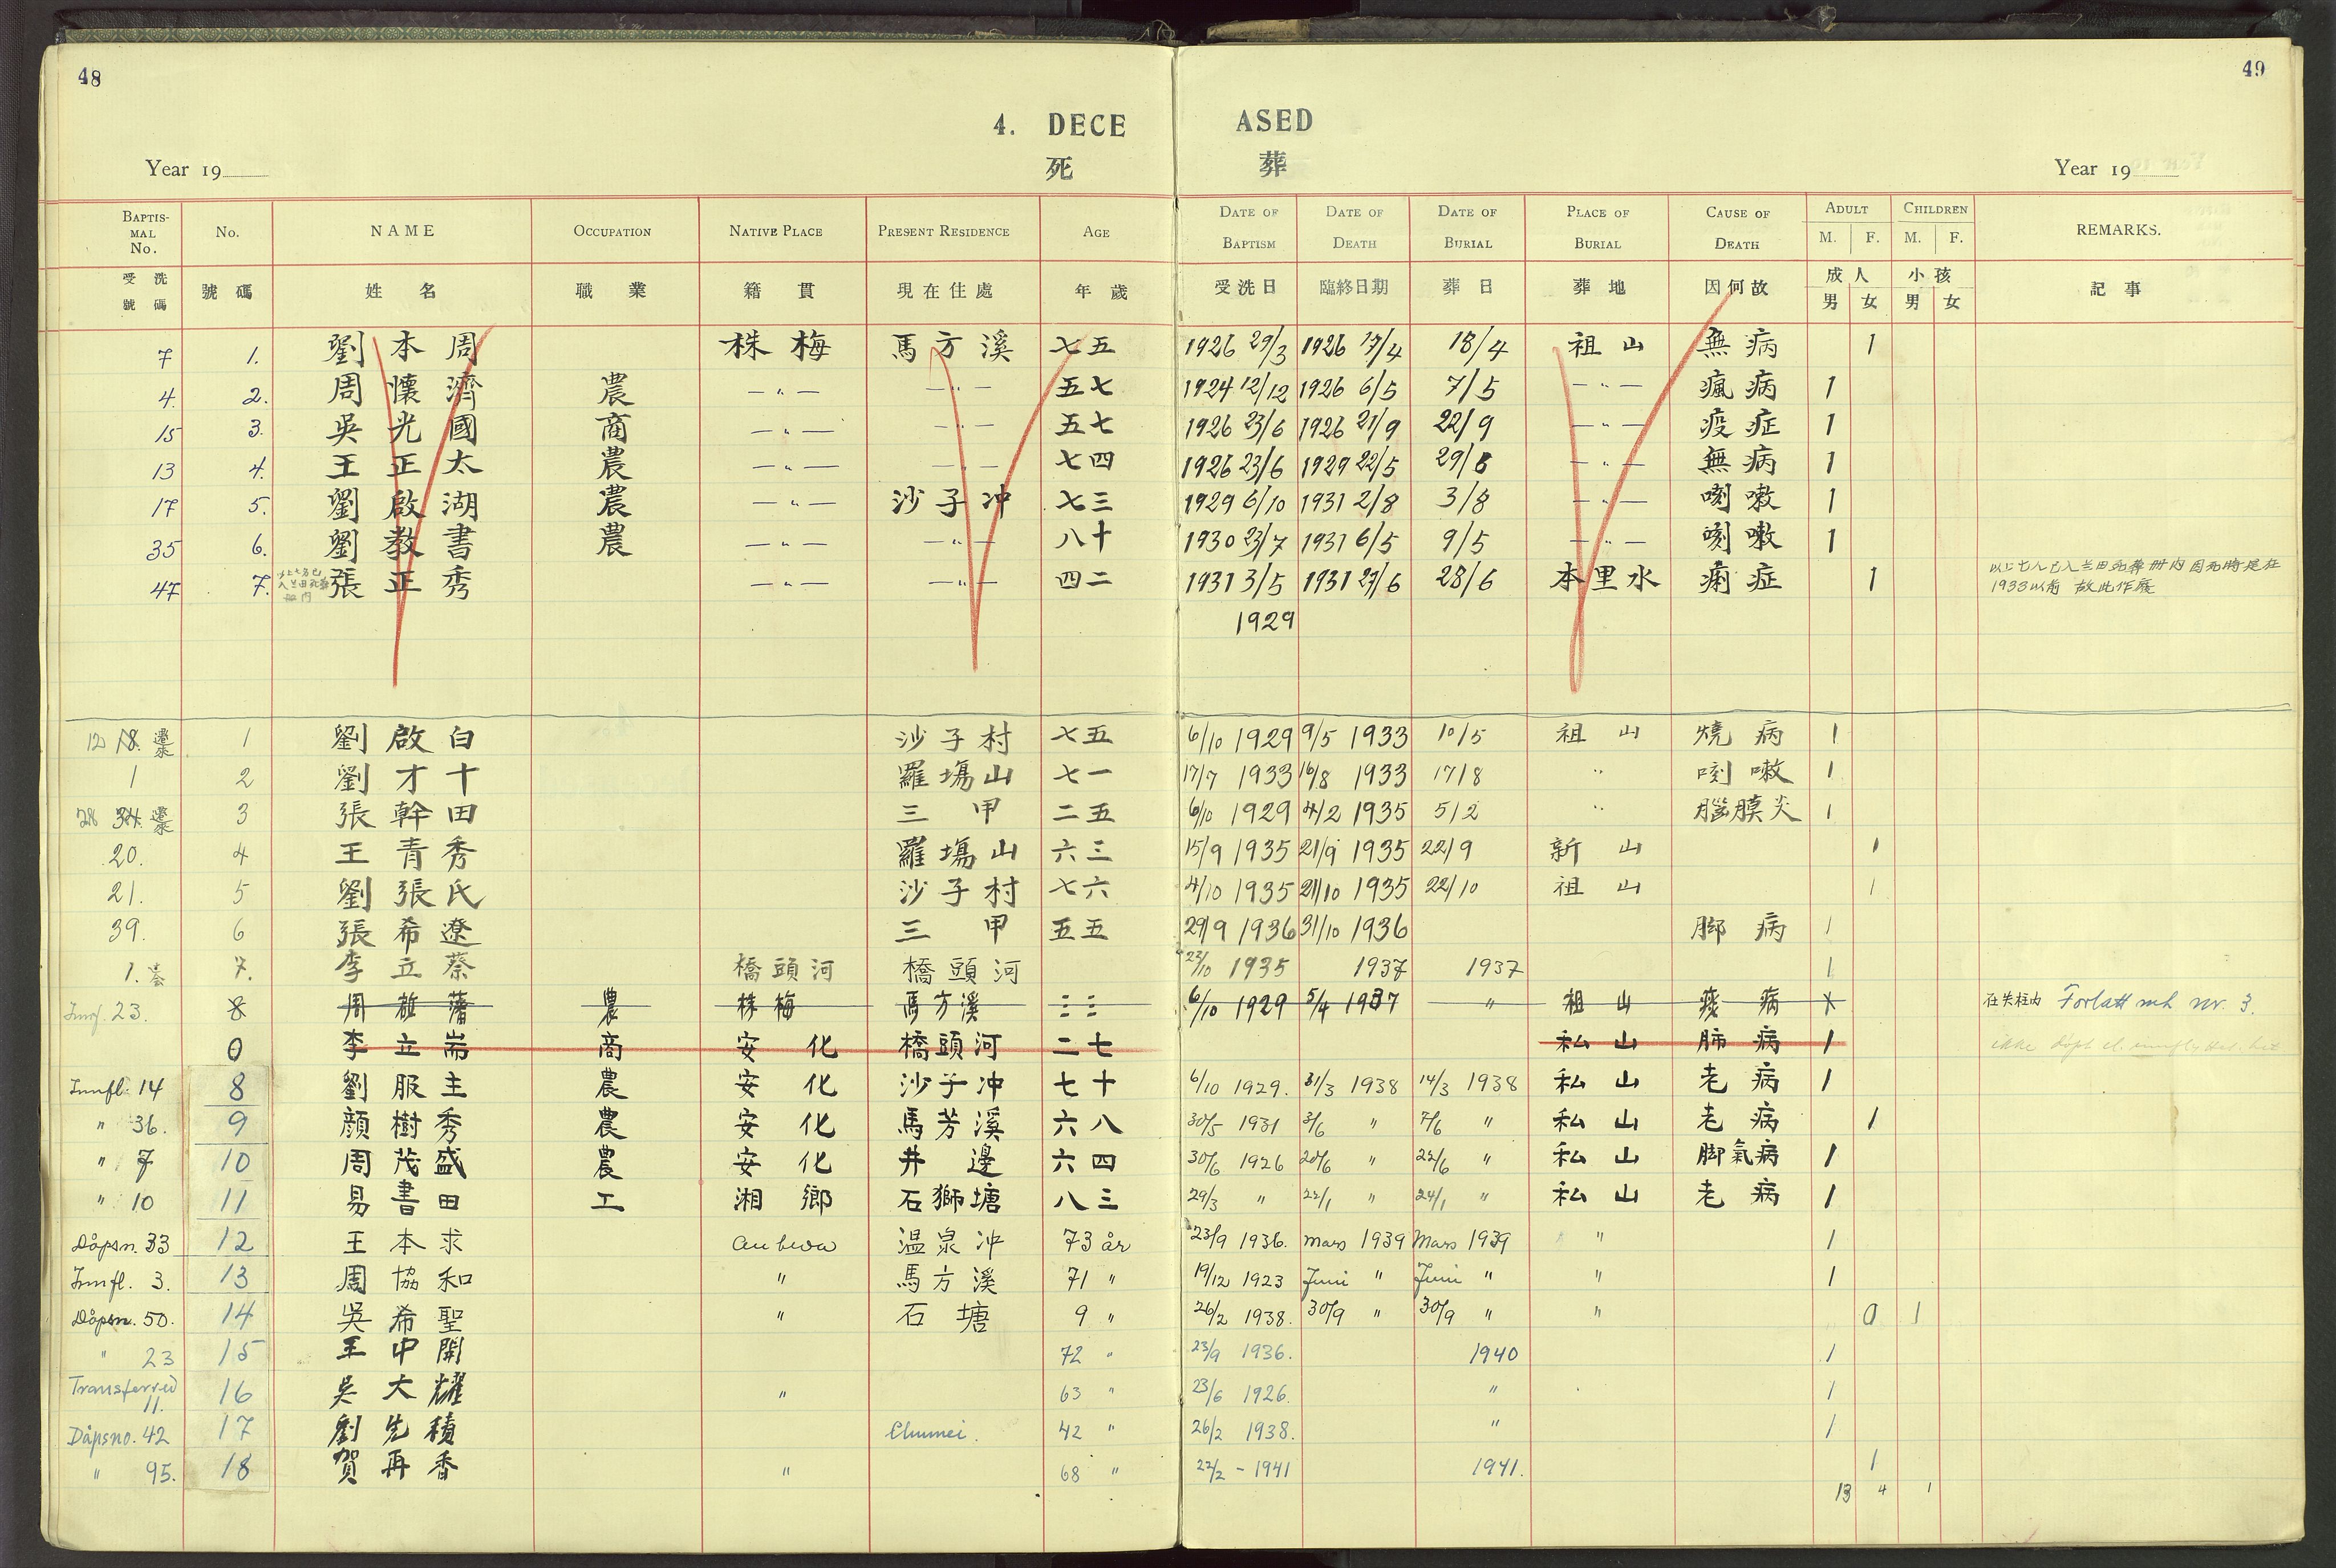 48
49
4. DECEASED
死 葬
Year 19
Year 19
BAPTISMAL No. No. NAME OCCUPATION NATIVE PLACE PRESENT RESIDENCE AGE DATE OF BAPTISM DATE OF DEATH DATE OF BURIAL PLACE OF BURIAL CAUSE OF DEATH ADULT M. F. CHILDREN M. F. REMARKS.
受洗號碼 號碼 姓名 職業 籍貫 現在住處 年歲 受洗日 臨終日期 葬日 葬地 因何故 成人 男 女 小孩 男 女 記事
7 1. 劉本周 株梅 馬方溪 七五 1926 29/3 1926 17/4 18/4 祖山 無病 1
4. 2. 周懷濟 農 —〃— —〃— 五七 1924 12/12 1926 6/5 7/5 —〃— 瘋病 1
15 3. 吳光國 商 —〃— —〃— 五七 1926 23/6 1926 21/9 22/9 —〃— 疫症 1
13 4. 王正太 農 —〃— —〃— 七四 1926 23/6 1929 22/5 29/5 —〃— 無病 1
17 5. 劉啟湖 農 —〃— 沙子冲 七三 1929 6/10 1931 2/8 3/8 —〃— 咳嗽 1
35 6. 劉教書 農 —〃— —〃— 八十 1930 23/7 1931 6/5 9/5 —〃— 咳嗽 1
47 7. 張正秀 —〃— —〃— 四二 1931 3/5 1931 27/6 28/6 本里水 痢症 1 以上七人已入兰田死葬册内因死時是在
1933以前 故此作廢
1929
12 18. 1 劉啟白 沙子村 七五 6/10 1929 9/5 1933 10/5 祖山 燒病 1
1 2 劉才十 羅塲山 七一 17/7 1933 16/8 1933 17/8 〃 咳嗽 1
28 34. 3 張幹田 三甲 二五 6/10 1929 4/2 1935 5/2 〃 腦膜炎 1
20. 4 王青秀 羅塲山 六三 15/9 1935 21/9 1935 22/9 新山 1
21. 5 劉張氏 沙子村 七六 4/10 1935 21/10 1935 22/10 祖山 1
39. 6 張希遼 三甲 五五 29/9 1936 31/10 1936 脚病 1
1. 7. 李立蔡 橋頭河 橋頭河 23/10 1935 1937 1937 1
Innf. 23. 8 周雄藩 農 株梅 馬方溪 三三 6/10 1929 5/4 1937 〃 祖山 痰病 1 在失柱内 Forlatt mh nr. 3.
0 李立耑 商 安化 橋頭河 二七 私山 肺病 1
Innfl. 14 8 劉服主 農 安化 沙子冲 七十 6/10 1929. 31/3 1938 14/3 1938 私山 老病 1
〃 36. 9 顔樹秀 農 安化 馬芳溪 六八 30/5 1931 3/6 〃 7/6 〃 私山 老病 1
〃 7 10 周茂盛 農 安化 井邊 六四 30/6 1926 20/6 〃 22/6 〃 私山 脚氣病 1
〃 10 11 易書田 工 湘鄉 石獅塘 八三 29/3 〃 22/1 〃 24/1 〃 私山 老病 1
Dåpsn. 33 12 王本求 Anhwa 温泉冲 73 år 23/9 1936. Mars 1939 Mars 1939 〃 1
Innfl. 3. 13 周協和 〃 馬方溪 71 〃 19/12 1923 Juni 〃 Juni 〃 〃 1
Dåpsn. 50. 14 吳希聖 〃 石塘 9 〃 26/2 1938. 30/9 〃 30/9 〃 〃 0 1
〃 23 15 王中開 72 〃 23/9 1936. 1940 1
Transferred 11. 16 吳大耀 〃 63 〃 23/6 1926. 〃 1
Dåpsno. 42 17 劉先積 Chumei. 42 〃 26/2 1938. 〃 1
〃 95. 18 賀再香 〃 68 〃 22/2 - 1941 1941. 1
13 4 1